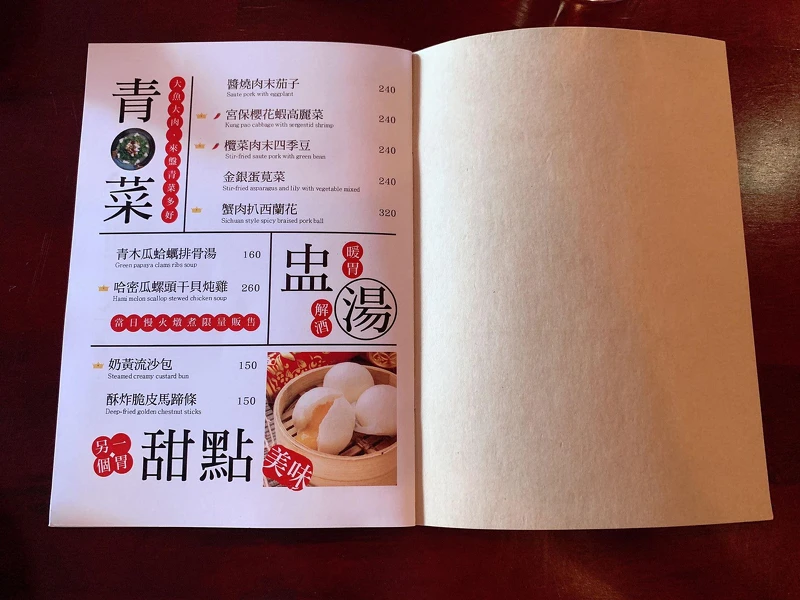 青菜
大魚大肉·來盤青菜多好
醬燒肉末茄子 240
Saute pork with eggplant
宮保櫻花蝦高麗菜 240
Kung pao cabbage with sergestid shrimp
欖菜肉末四季豆 240
Stir-fried saute pork with green bean
金銀蛋莧菜 240
Stir-fried asparagus and lily with vegetable mixed
蟹肉扒西蘭花 320
Sichuan style spicy braised pork ball
青木瓜蛤蠣排骨湯 160
Green papaya clams ribs soup
哈密瓜螺頭干貝炖雞 260
Hami melon scallop stewed chicken soup
當日慢火燉煮限量販售
盅湯
暖胃
解酒
奶黃流沙包 150
Steamed creamy custard bun
酥炸脆皮馬蹄條 150
Deep-fried golden chestnut sticks
另一個·胃
甜點
美味